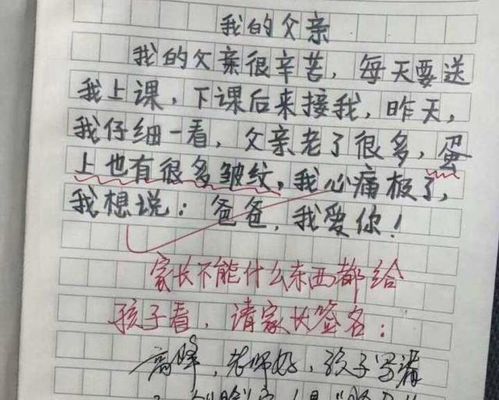 我的父亲
我的父亲很辛苦，每天要送
我上课，下课后来接我，昨天，
我仔细一看，父亲老了很多，蛋
上也有很多皱纹，我心痛极了，
我想说：爸爸，我爱你！
家长不能什么东西都给
孩子看，请家长签名：
高峰，老师好，孩子写